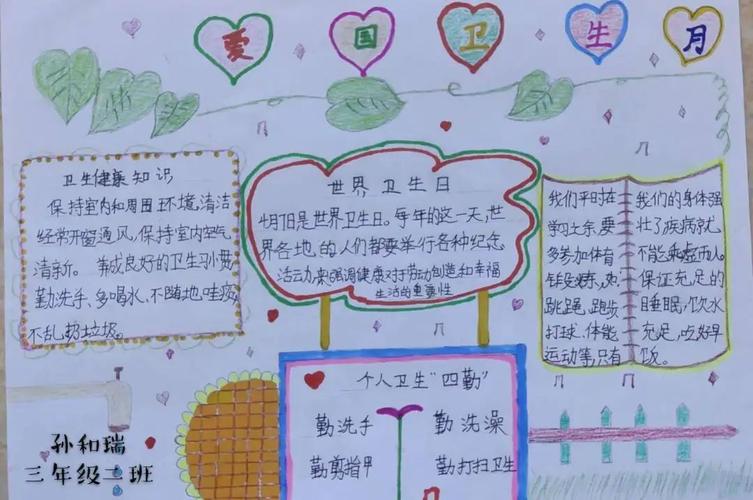 爱国卫生月
卫生健康知识
保持室内和周围环境清洁
经常开窗通风,保持室内空气
清新。养成良好的卫生习惯
勤洗手、多喝水、不随地吐痰
不乱扔垃圾。
世界卫生日
4月7日是世界卫生日。每年的这一天,世
界各地的人们都要举行各种纪念
活动,来强调健康对于劳动创造和幸福
生活的重要性
我们平时在
学习之余,要
多参加体育
锻炼,如
跳绳、跑步
打球、体能
运动等,只有
我们的身体强
壮了疾病就
不能乘虚而入。
保证充足的
睡眠,饮水
充足,吃好早
饭。
个人卫生“四勤”
勤洗手
勤洗澡
勤剪指甲
勤打扫卫生
孙和瑞
三年级二班